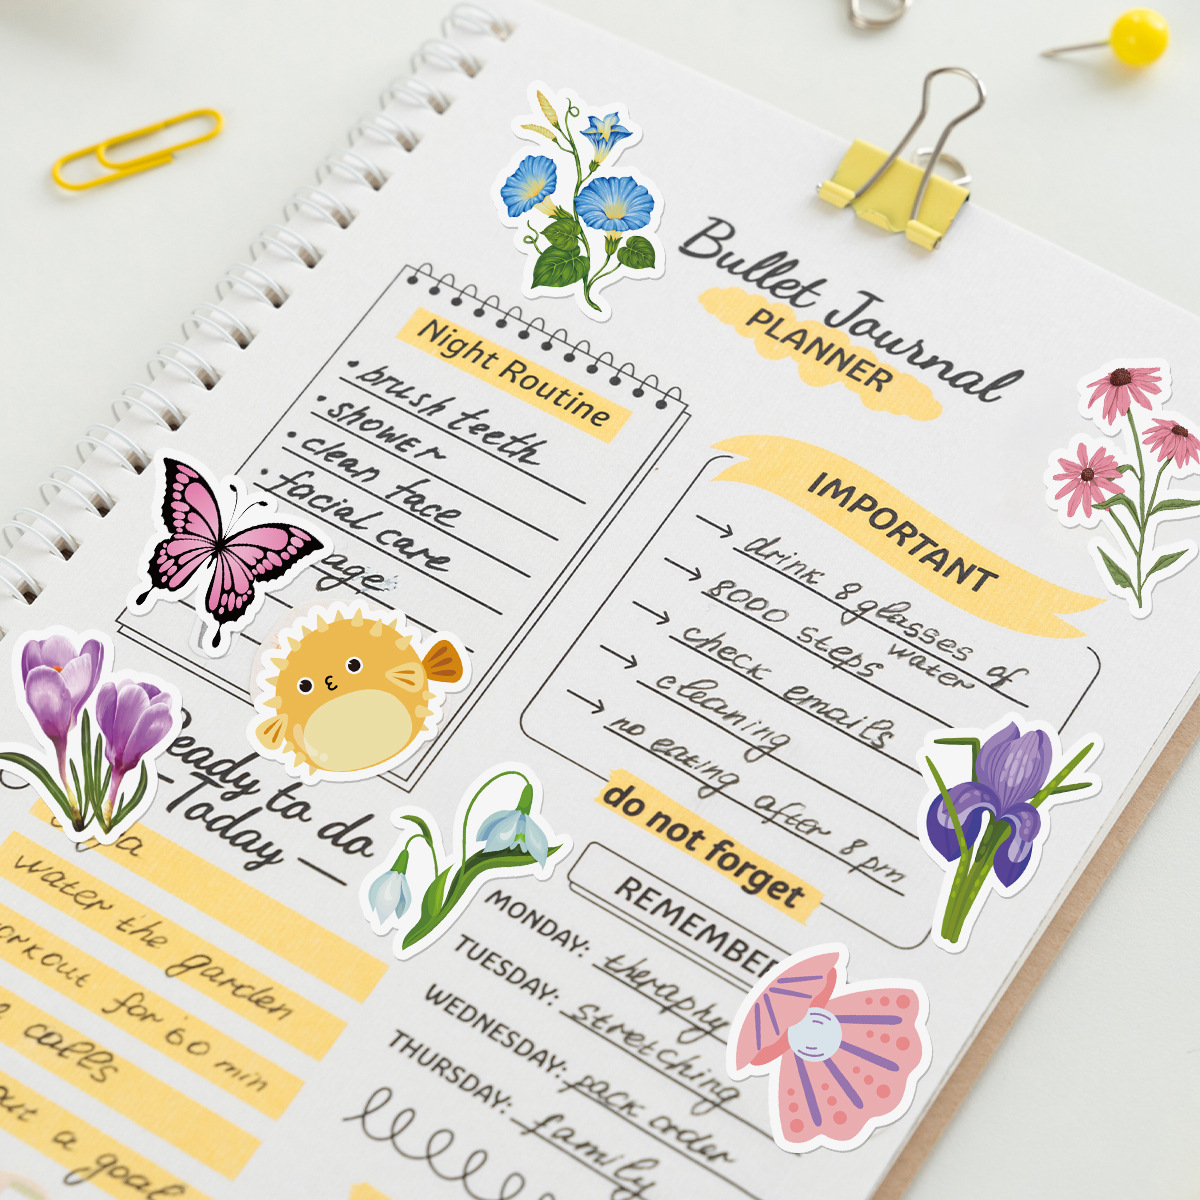 Bullet Journal
PLANNER
Night Routine
• brush teeth
• shower
• clean face
• facial care
IMPORTANT
→ drink 8 glasses of
water
→ 8000 steps
→ check emails
→ cleaning
→ no eating after 8 pm
do not forget
REMEMBER
MONDAY: theraphy
TUESDAY: stretching
WEDNESDAY: pack order
THURSDAY: family
Ready to do
Today
water the garden
workout for 60 min
calls
a goal